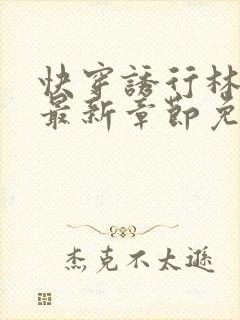 快穿誘行林
最新章節免
杰克不太遜